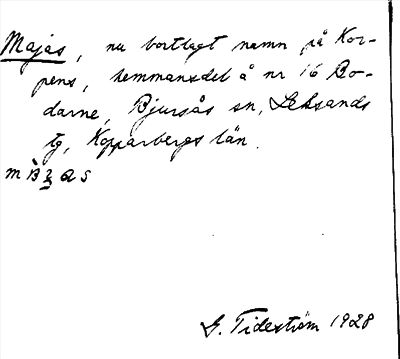 Majas, nu bortlagt namn på Kor-
pens, hemmansdel å nr 16 Bo-
darne, Bjursås sn, Leksands
tg, Kopparbergs län.
G. Tideström 1928